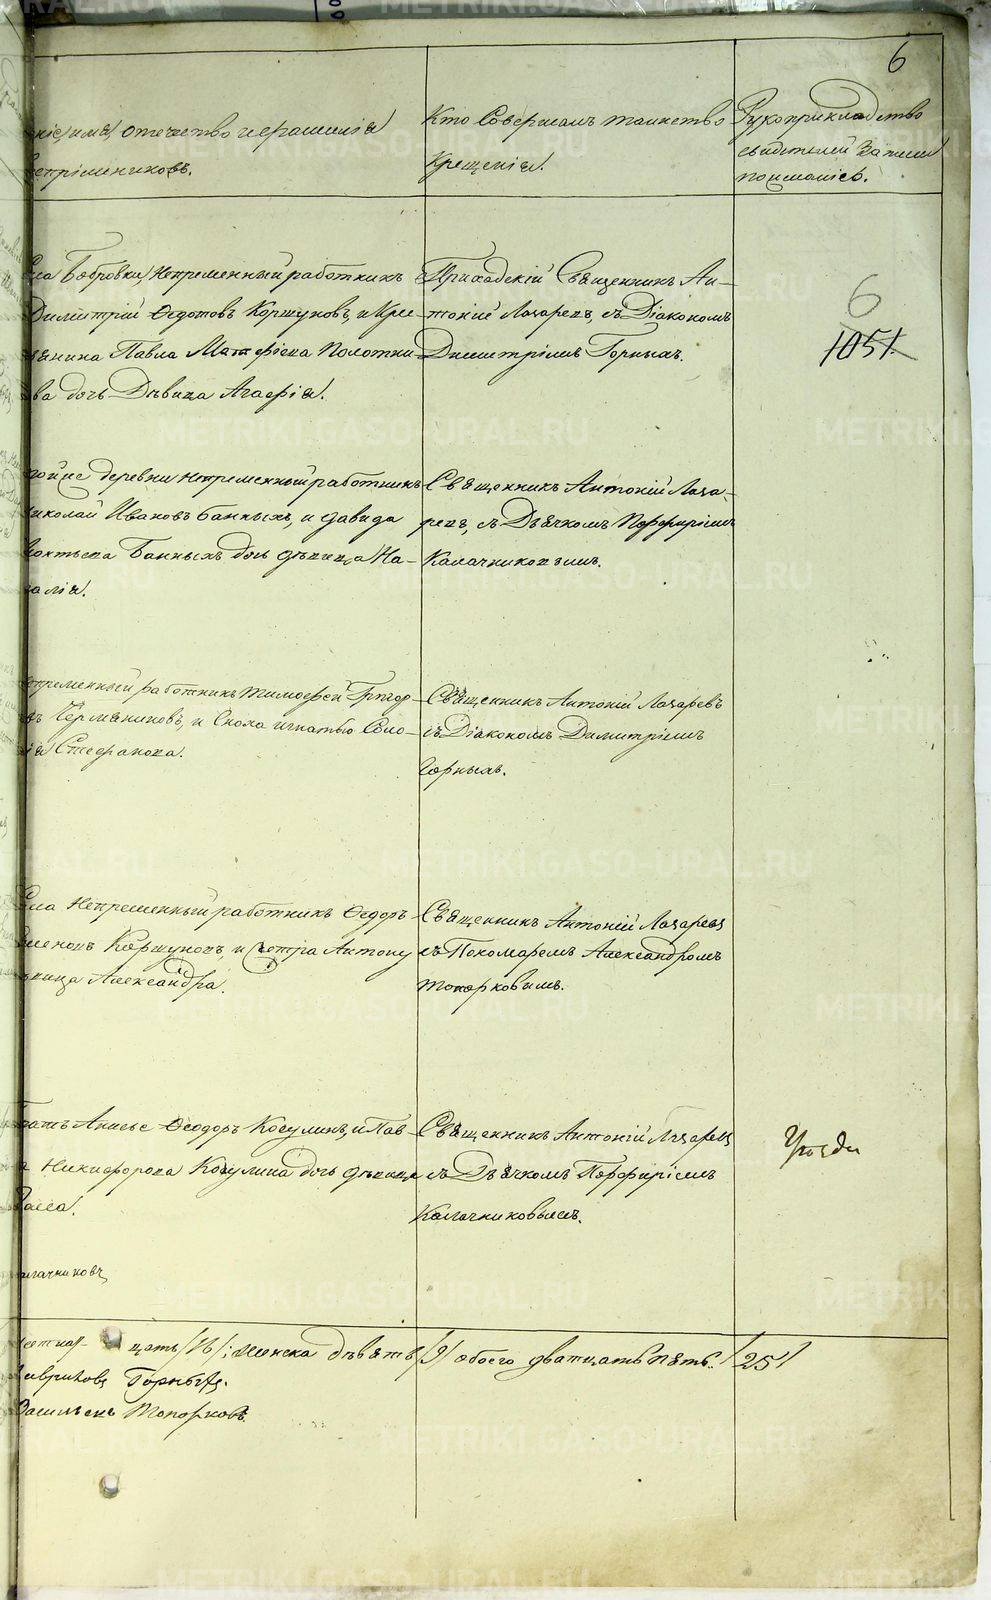 6
имя, отечество и фамилія
воспріемниковъ.
Кто совершалъ таинство
крещенія.
Рукоприкладство
свидѣтелей записи
по желанію.
села Бобровки, непременный работникъ
Димитрій Ѳедотовъ Коршуновъ, и кре-
стьянина Павла Матфіева Полотни-
ва дочь Дѣвица Агафія.
Приходскій Священникъ Ан-
тоній Лазаревъ, съ Діакономъ
Димитріемъ Горныхъ.
6
1051.
той же деревни непременный работникъ
Николай Ивановъ Банныхъ, и Давида
Банныхъ дочь дѣвица На-
талія.
Священникъ Антоній Лаза-
ревъ, съ Дьячкомъ Порфиріемъ
Калачниковымъ.
непременный работникъ Тимофей Григор-
въ Чермяниновъ, и Сноха Игнатью Соло-
Стефанова.
Священникъ Антоній Лазаревъ
съ Діакономъ Димитріемъ
Горныхъ.
села Непременный работникъ Ѳедоръ
Семеновъ Коршуновъ, и сестра Антону
дѣвица Александра.
Священникъ Антоній Лазаревъ
съ Пономаремъ Александромъ
Топорковымъ.
братъ Анисье Ѳеодоръ Косулинъ, и Пав-
ла Никифорова Косулина дочь дѣвица
Священникъ Антоній Лазаревъ
съ Дьячкомъ Порфиріемъ
Калачниковымъ.
Калачниковъ
цать /16/; женска девять /9/ обоего дватцать пять. /25/
Гавриловъ Горныхъ.
Васильевъ Топорковъ.
METRIKI.GASO-URAL.RU